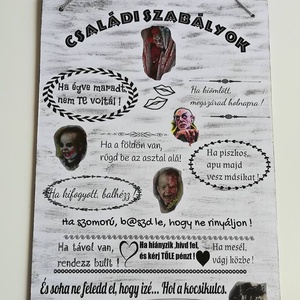 CSALÁDI SZABÁLYOK
Ha égve maradt,
nem TE voltál!
Ha kiömlött,
megszárad holnapra!
Ha a földön van,
rúgd be az asztal alá!
Ha piszkos,
apu majd
vesz másikat!
Ha kifogyott, balhézz
Ha szomorú, b@szd le, hogy ne rinyáljon!
Ha távol van,
rendezz bulit!
Ha hiányzik, hívd fel,
és kérj TŐLE pénzt!
Ha mesél,
vágj közbe!
És soha ne feledd el, hogy izé... Hol a kocsikulcs.